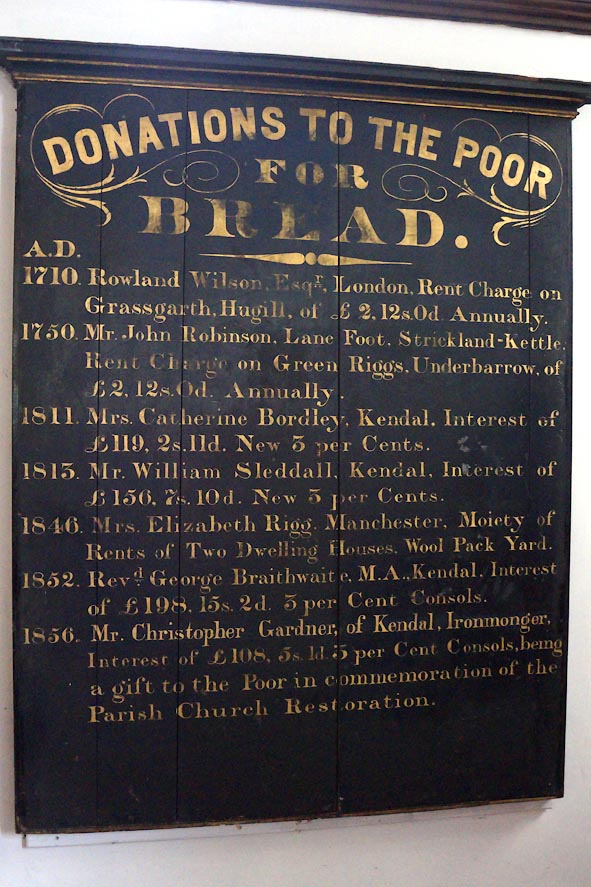 DONATIONS TO THE POOR
FOR
BREAD.
A.D.
1710. Rowland Wilson, Esqr, London, Rent Charge on
Grassgarth, Hugill, of £2, 12s.0d. Annually.
1750. Mr. John Robinson, Lane Foot, Strickland-Kettle,
Rent Charge on Green Riggs, Underbarrow, of
£2, 12s.0d. Annually.
1811. Mrs. Catherine Bordley, Kendal, Interest of
£119, 2s.11d. New 3 per Cents.
1813. Mr. William Sleddall, Kendal, Interest of
£156, 7s.10d. New 3 per Cents.
1846. Mrs. Elizabeth Rigg, Manchester, Moiety of
Rents of Two Dwelling Houses, Wool Pack Yard.
1852. Revd George Braithwaite, M.A., Kendal, Interest
of £198, 15s.2d. 3 per Cent Consols.
1856. Mr. Christopher Gardner, of Kendal, Ironmonger,
Interest of £108, 5s.1d. 3 per Cent Consols, being
a gift to the Poor in commemoration of the
Parish Church Restoration.